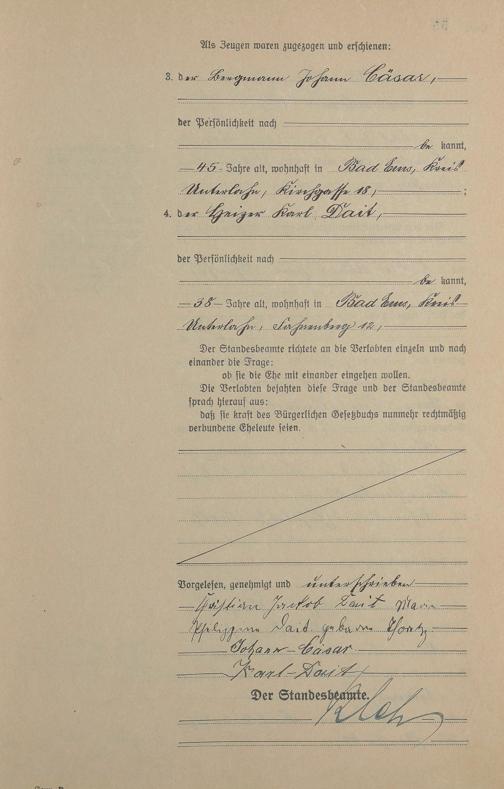 Als Zeugen waren zugezogen und erschienen:
3. der Bergmann Johann Cäsar,
der Persönlichkeit nach
be kannt,
45 Jahre alt, wohnhaft in Bad Ems, Kreis
Unterlahn, Kirchgasse 18, ;
4. der Heizer Karl Dait,
der Persönlichkeit nach
be kannt,
38 Jahre alt, wohnhaft in Bad Ems, Kreis
Unterlahn, Fahnenberg 12,
Der Standesbeamte richtete an die Verlobten einzeln und nach
einander die Frage:
ob sie die Ehe mit einander eingehen wollen.
Die Verlobten bejahten diese Frage und der Standesbeamte
sprach hierauf aus:
daß sie kraft des Bürgerlichen Gesetzbuchs nunmehr rechtmäßig
verbundene Eheleute seien.
Vorgelesen, genehmigt und unterschrieben
Jackob Dait
Dait
Johann Cäsar
Karl Dait
Der Standesbeamte.